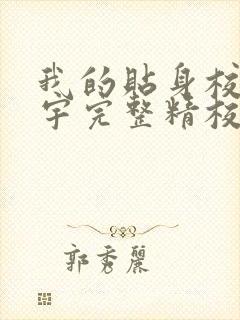 我的贴身校
宇完整精校
郭秀丽